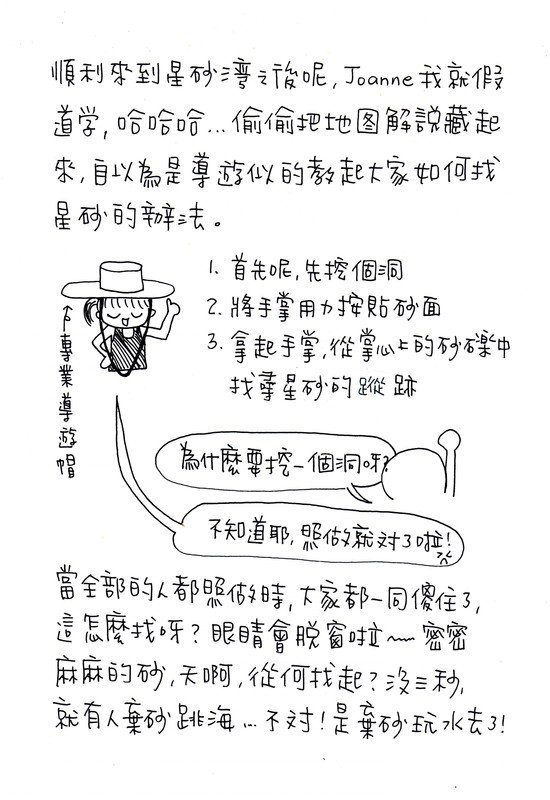 順利來到星砂湾之後呢, Joanne 我就假
道学, 哈哈哈...偷偷把地图解說藏起
來, 自以為是導遊似的教起大家如何找
星砂的辦法。
1. 首先呢, 先挖個洞
2. 將手掌用力按貼砂面
3. 拿起手掌, 從掌心上的砂礫中
找尋星砂的蹤跡
↑專業導遊帽
為什麼要挖一個洞呀?
不知道耶, 照做就対了啦!
當全部的人都照做時, 大家都一同傻住了,
這怎麼找呀? 眼睛會脫窗啦~~ 密密
麻麻的砂, 天啊, 從何找起? 沒三秒,
就有人棄砂跳海... 不対! 是棄砂玩水去了!